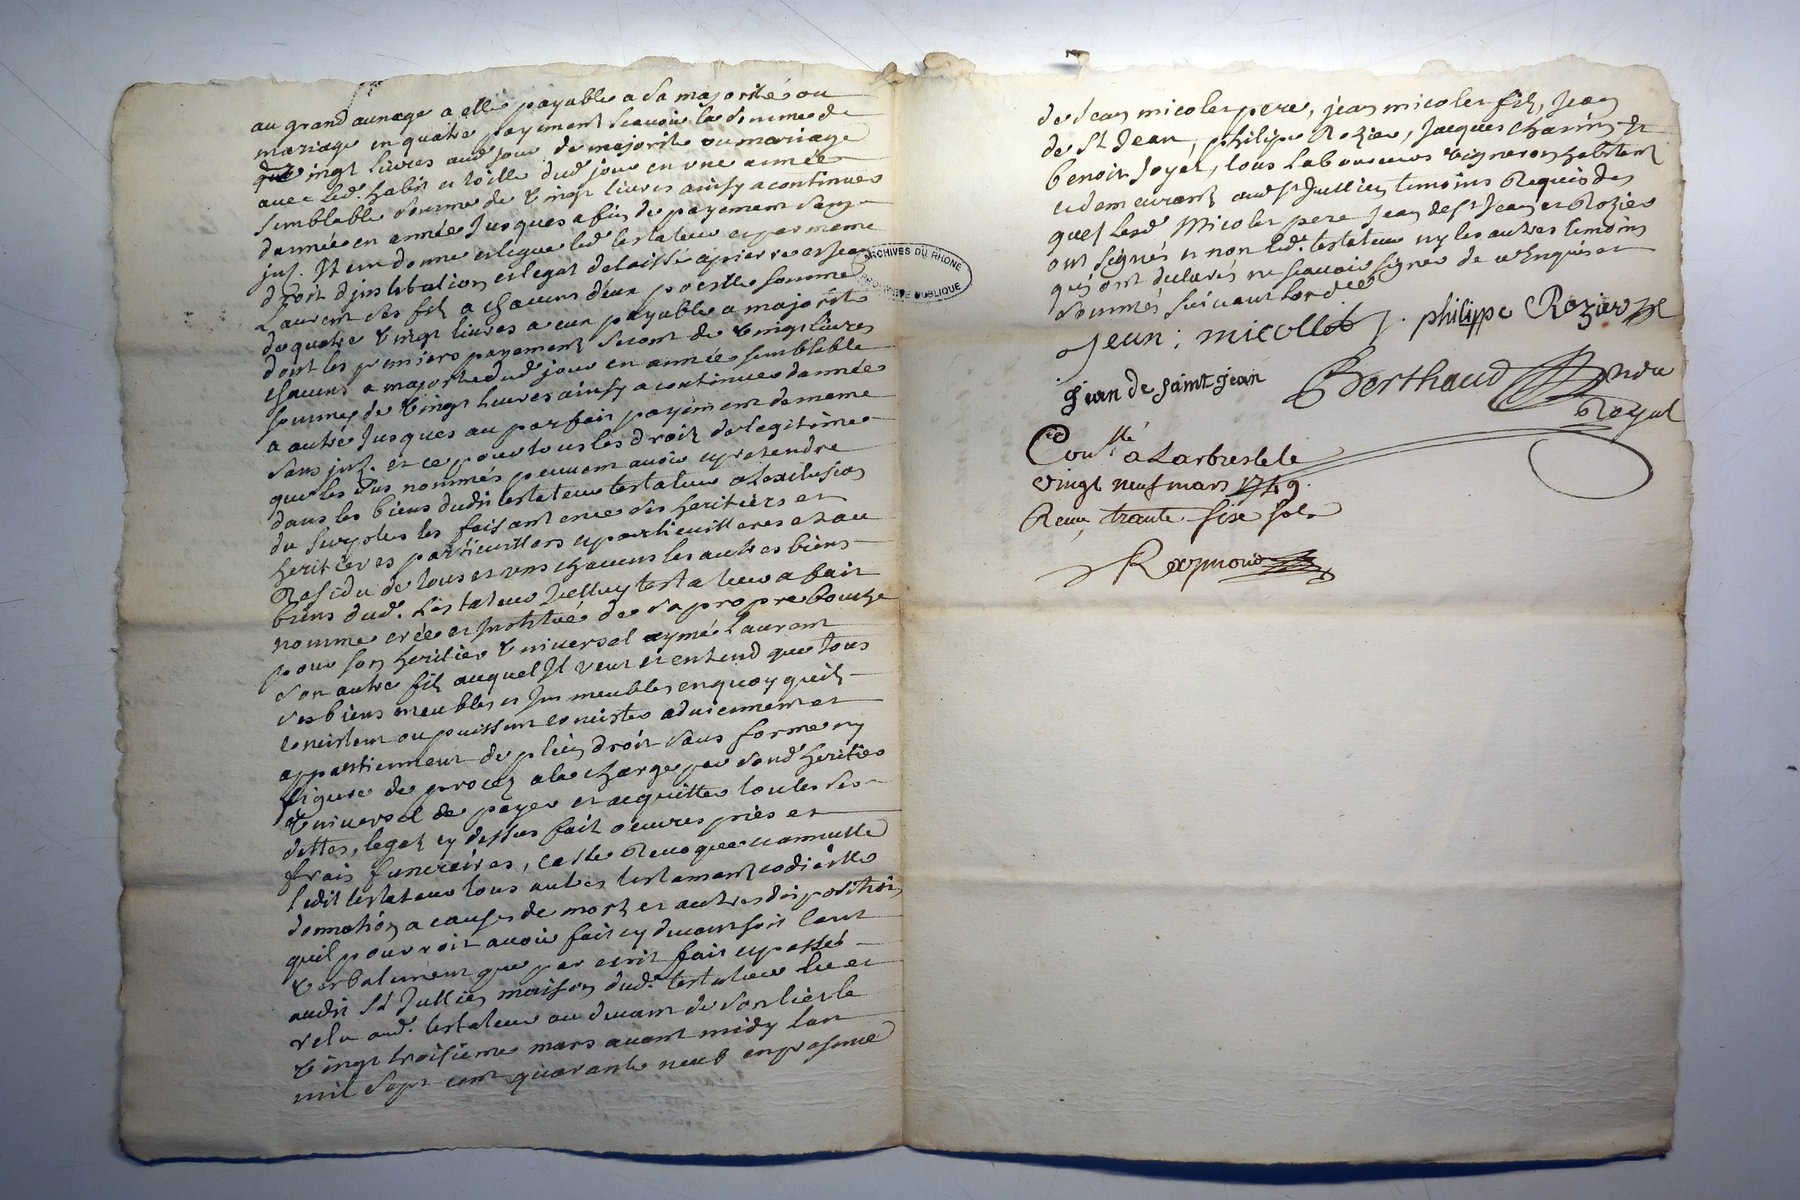 au grand aunage a elle payable a sa majorité ou
mariage en quatre payement scavoir la somme de
vingt livres aud. jour de majorité ou mariage
avec led. habit et toille dud. jour en une année
semblable somme de vingt livres ainsy a continuer
dannée en année jusques a fin de payement sans
Jnt. Jtem donne et legue led. testateur et par meme
droit djnstitution et legat delaisse a pierre et Jean
Laurent ses fils a chacuns deux pareille somme
de quatre vingt livres a eux payable a majorité
dont les premiers payement seront de vingt livres
chacuns a majorité dud. jour en année semblable
somme de vingt livres ainsy a continuer dannée
a autre jusques au parfait payement de meme
sans jnt. et ce pour tous les droits de legitime
que les sus nommés peuvent avoir et pretendre
dans les biens dudit testateur testateur a Lexclusion
du surplus les faisant en ce ses heritiers et
heritieres particulliers et particullieres et au
Residu de tous et uns chacuns les autres biens
biens dud. testateur Jcelluy testateur a fait
nomme crée et Jnstitué de sa propre bouche
pour son heritier universel aymé Laurent
son autre fils auquel Jl veut et entend que tous
ses biens meubles et Jmmeubles en quoy quils
consistent ou puissent consister adviennent et
appartiennent de plein droit sans forme ny
figure de procez a la charge par sond. heritier
universel de payer et acquitter toutes ses
dettes, legats cy dessus fait oeuvres pies et
frais funeraires, casse Revoque et annulle
ledit testateur tous autres testament codicille
donnation a causes de mort et autres disposition
quil pourroit avoir fait cy devant soit tant
verbalement que par ecrit fait et passé
audit St Jullien maison dud. testateur lu et
relu aud. testateur au devant de son lict le
vingt troisieme mars avant midy lan
mil sept cent quarante neuf en presence
de Jean micolet pere, jean micolet fils, Jean
de St Jean, philipe Rozier, Jacques et
benoit Joyet, tous Laboureurs vignerons habitant
et demeurant aud. St Jullien temoins Requis des
quels lesd. Micolet pere Jean de St Jean et Rozier
ont signés et non led. testateur ny les autres temoins
qui ont declarés ne scavoir signer de ce Enquis et
sommés suivant lordce
Jean: micollet J. philippe Rozier
Jean de saint jean Berthaud Ndre
Royal
Conllé a Larbresle le
vingt neuf mars 1749
Receu trante sixe sols
Reymond
ARCHIVES DU RHONE
PROPRIÉTÉ PUBLIQUE